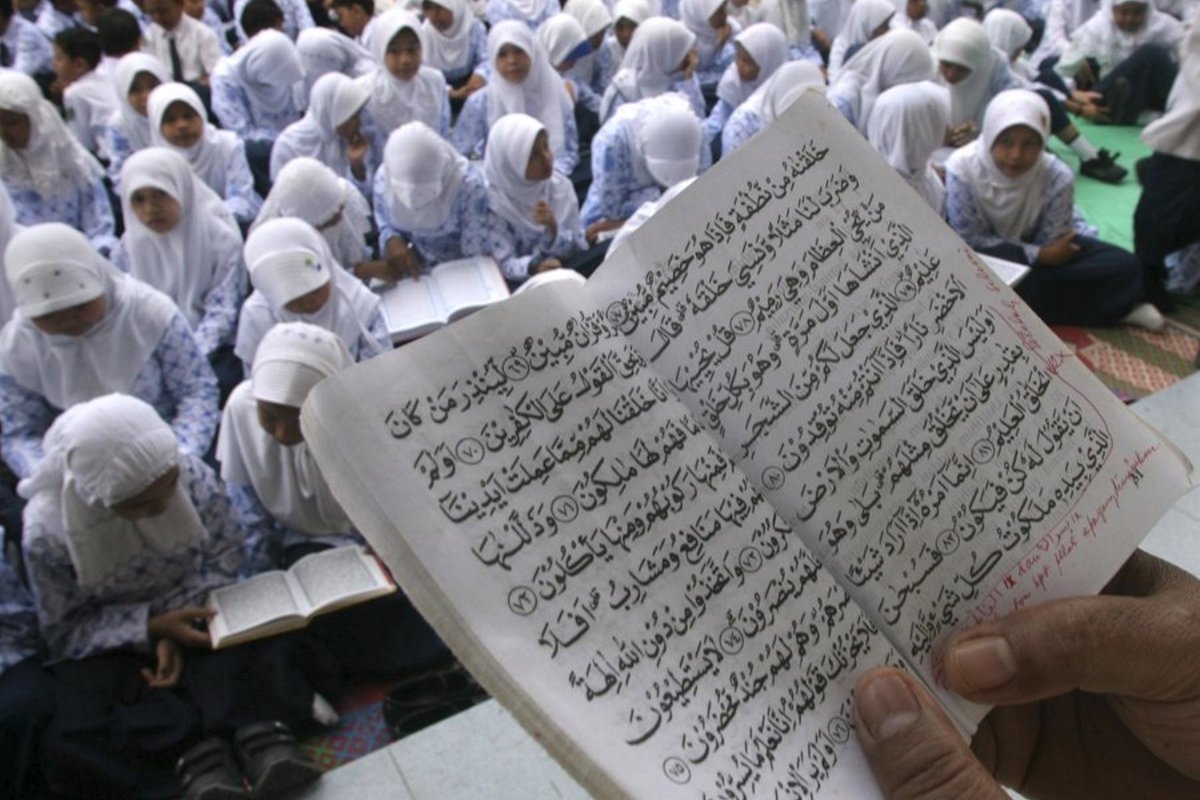 وَّقُرْاٰنٌ مُّبِيْنٌ ٦٩ لِّيُنْذِرَ مَنْ كَانَ
يَحِقَّ الْقَوْلُ عَلَى الْكٰفِرِيْنَ ٧٠ اَوَلَمْ
اَنَّا خَلَقْنَا لَهُمْ مِّمَّا عَمِلَتْ اَيْدِيْنَا
فَهُمْ لَهَا مٰلِكُوْنَ ٧١ وَذَلَّلْنٰهَا
فَمِنْهَا رَكُوْبُهُمْ وَمِنْهَا يَأْكُلُوْنَ ٧٢
فِيْهَا مَنَافِعُ وَمَشَارِبُ اَفَلَا
٧٣ وَاتَّخَذُوْا مِنْ دُوْنِ اللهِ اٰلِهَةً
لَّهُمْ يُنْصَرُوْنَ ٧٤ لَا يَسْتَطِيْعُوْنَ
نَصْرَهُمْ وَهُمْ لَهُمْ جُنْدٌ مُّحْضَرُوْنَ ٧٥
يَحْزُنْكَ قَوْلُهُمْ اِنَّا نَعْلَمُ مَا يُسِرُّوْنَ
٧٦ اَوَلَمْ يَرَ الْاِنْسَ
خَلَقْنٰهُ مِنْ نُّطْفَةٍ فَاِذَا هُوَ خَصِيْمٌ مُّبِيْنٌ ٧٧
وَضَرَبَ لَنَا مَثَلًا وَّنَسِيَ خَلْقَهٗ قَالَ
مَنْ يُّحْيِ الْعِظَامَ وَهِيَ رَمِيْمٌ ٧٨ قُلْ يُحْيِيْهَا
الَّذِيْ اَنْشَاَهَا اَوَّلَ مَرَّةٍ وَهُوَ بِكُلِّ خَلْقٍ
عَلِيْمٌ ٧٩ الَّذِيْ جَعَلَ لَكُمْ مِّنَ الشَّجَرِ
الْاَخْضَرِ نَارًا فَاِذَا اَنْتُمْ مِّنْهُ تُوْقِدُوْنَ ٨٠
اَوَلَيْسَ الَّذِيْ خَلَقَ السَّمٰوٰتِ وَالْاَرْضَ
بِقٰدِرٍ عَلٰى اَنْ يَّخْلُقَ مِثْلَهُمْ بَلٰى وَهُوَ
الْخَلّٰقُ الْعَلِيْمُ ٨١ اِنَّمَا اَمْرُهٗ اِذَا اَرَادَ شَيْئًا
اَنْ يَّقُوْلَ لَهٗ كُنْ فَيَكُوْنُ ٨٢ فَسُبْحٰنَ
الَّذِيْ بِيَدِهٖ مَلَكُوْتُ كُلِّ شَيْءٍ وَّاِلَيْهِ